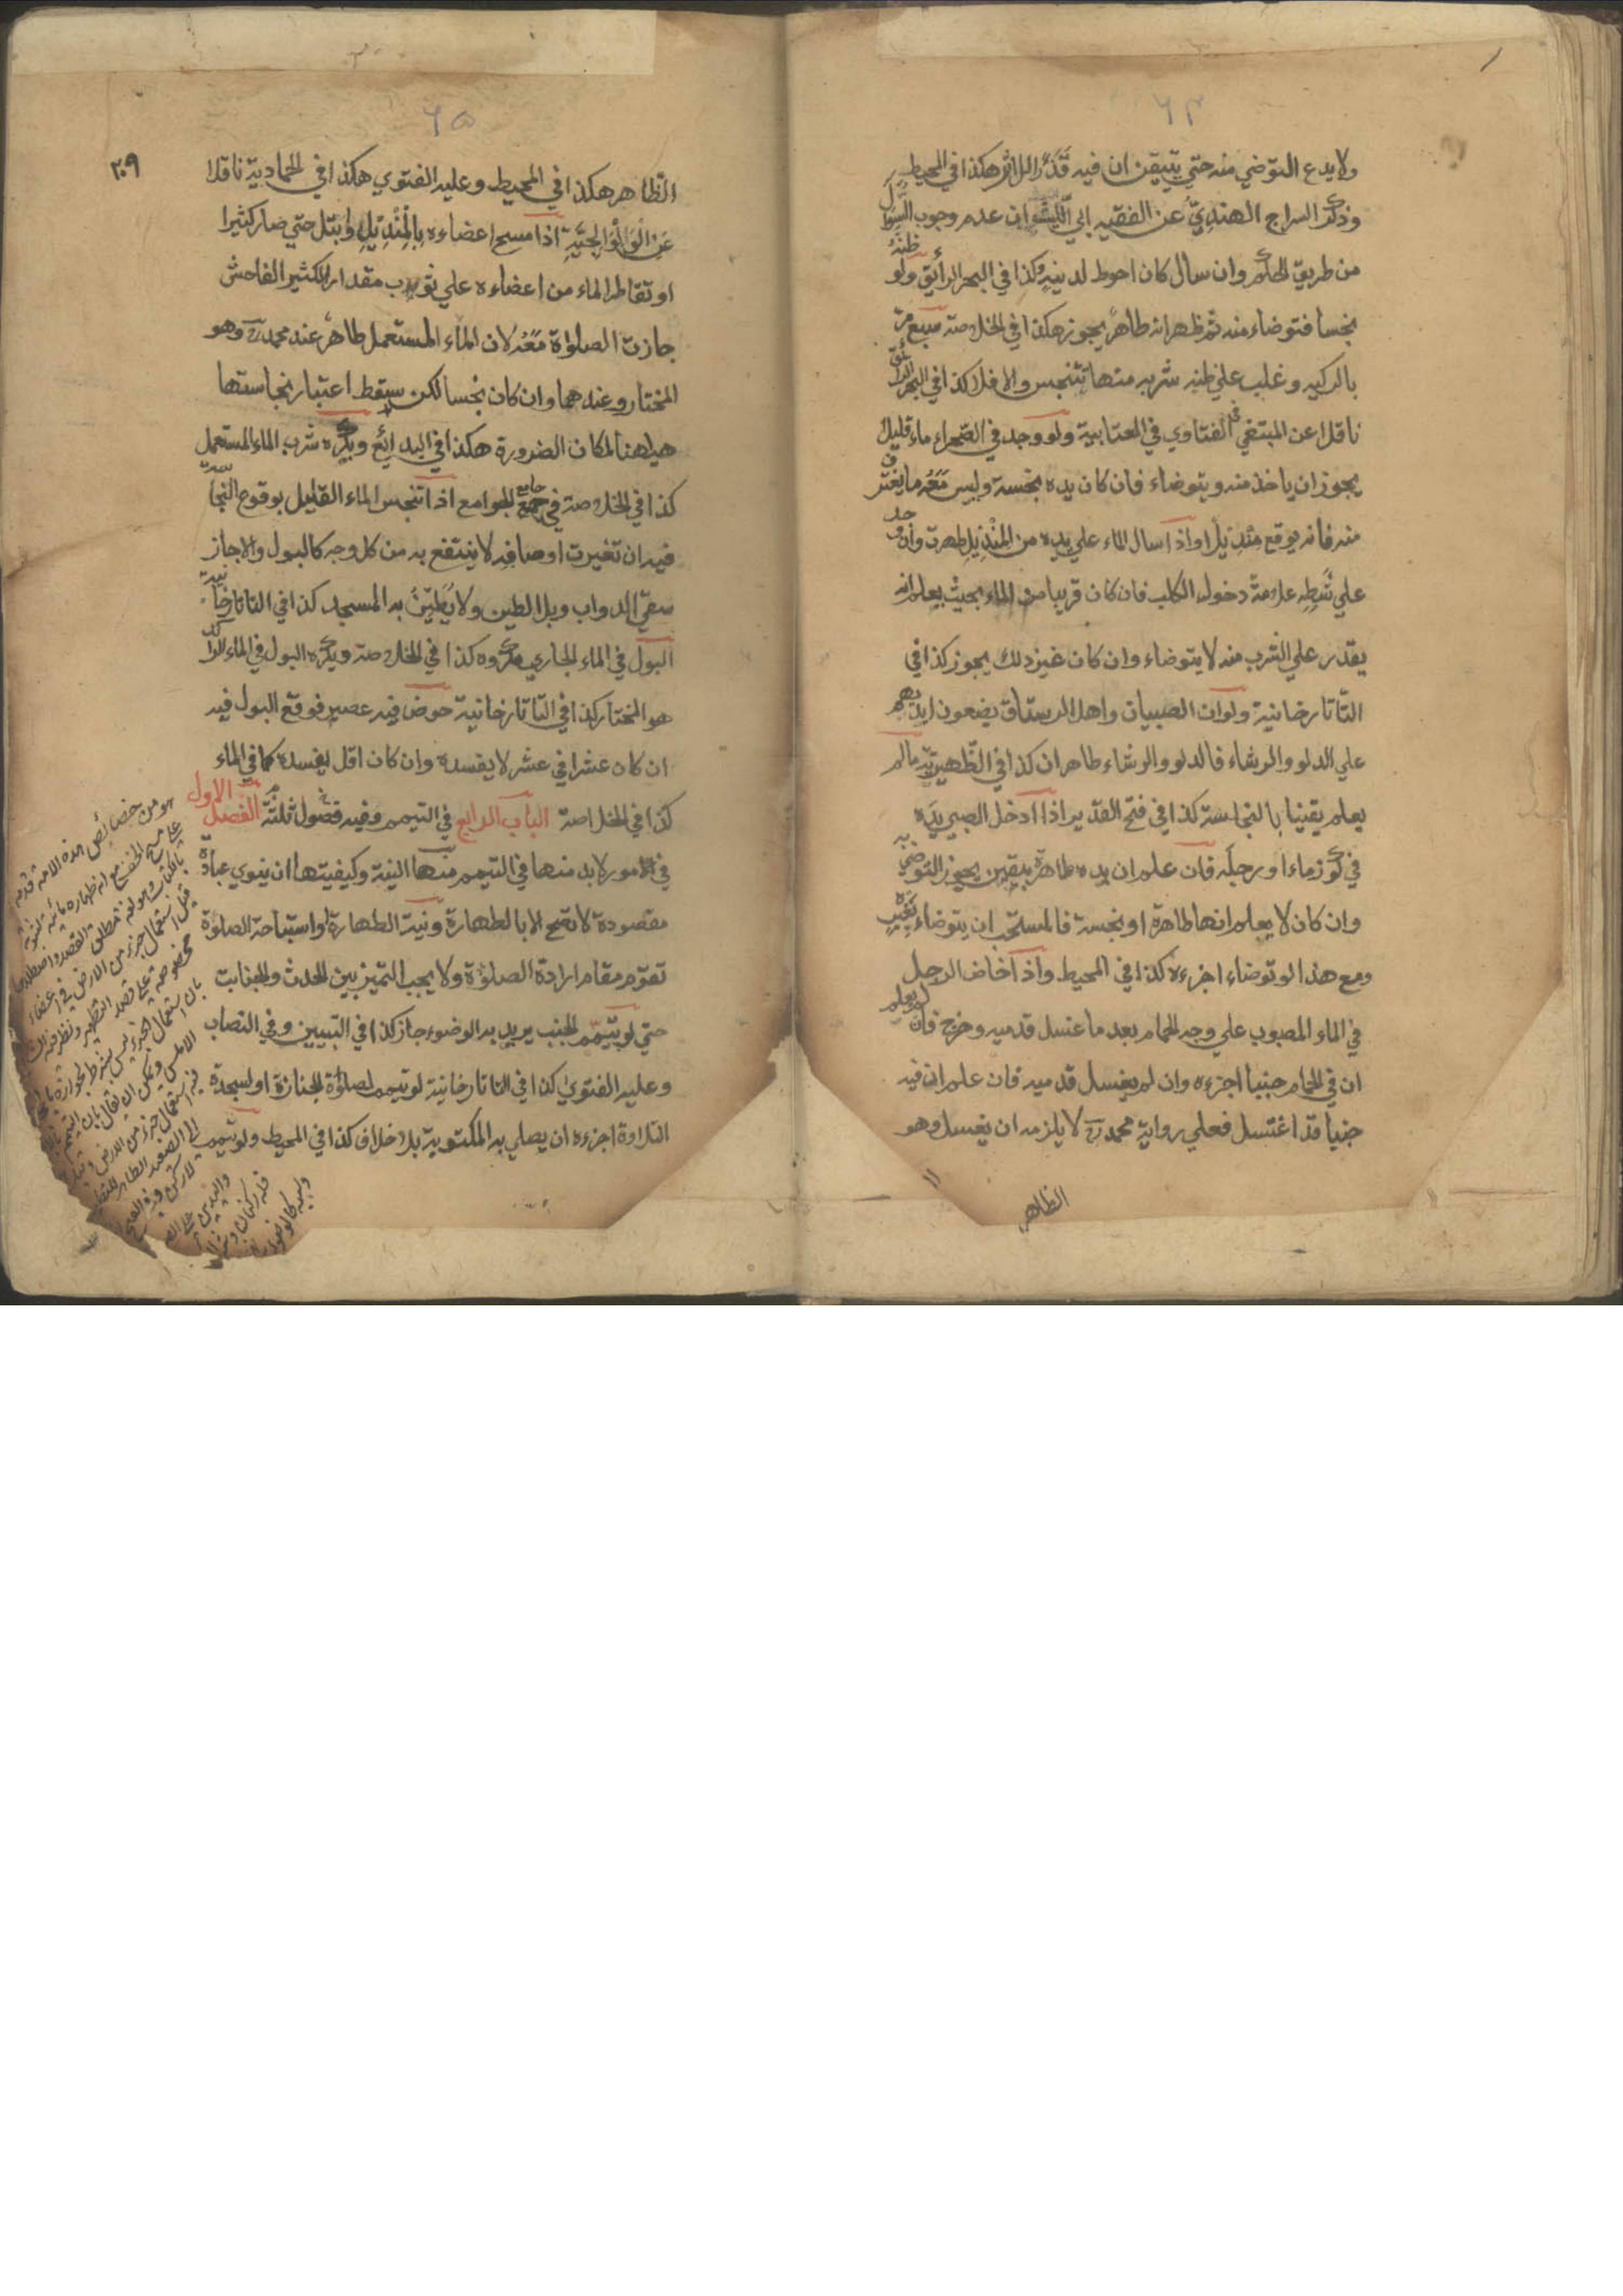 ٦٤
ولا يدع التوضي منه حتي يتيقن ان فيه قذرا للاثر هكذا في المحيط
وذكر السراج الهندي عن الفقيه ابي الليث ان عدم وجوب السوال
من طريق الحكم وان سأل كان احوط لدينه وكذا في البحر الرائق ولو ظنه
نجسا فتوضاء منه ثم ظهر انه طاهر يجوز هكذا في الخلاصة سبع مر
بالركيه وغلب علي ظنه شربه منها تتنجس والا فلا كذا في البحر الرائق
ناقلا عن المبتغي في الفتاوي في العتابية ولو وجد في الصحراء ماء قليلا
يجوز ان ياخذ منه ويتوضاء فان كان يده نجسة وليس معه ما يغترف
منه فانه يوقع منديلا واذا سال الماء علي يده من المنديل طهرت وان وجد
علي شطه علامة دخول الكلب فان كان قريبا من الماء بحيث يعلم انه
يقدر علي الشرب منه لا يتوضاء وان كان غير ذلك يجوز كذا في
التاتارخانية ولو ان الصبيان واهل الرستاق يضعون ايديهم
علي الدلو والرشاء فالدلو والرشاء طاهران كذا في الظهيرية ما لم
يعلم يقينا بالنجاسة كذا في فتح القدير اذا ادخل الصبي يده
في كوز ماء او رجله فان علم ان يده طاهرة بيقين يجوز التوضي به
وان كان لا يعلم انها طاهرة او نجسة فالمستحب ان يتوضاء بغيره
ومع هذا لو توضاء اجزءه كذا في المحيط واذا خاض الرجل
في الماء المصبوب علي وجه الحمام بعد ما غسل قدميه وخرج فان لم يعلم
ان في الحمام جنبا اجزءه وان لم يغسل قدميه فان علم ان فيه
جنبا قد اغتسل فعلي رواية محمد رح لا يلزمه ان يغسل وهو
الظاهر
٦٥
٢٠٩
الظاهر هكذا في المحيط وعليه الفتوي هكذا في الحمادية ناقلا
عن الولوالجية اذا مسح اعضاءه بالمنديل وابتل حتي صار كثيرا
او تقاطر الماء من اعضاءه علي ثوب مقدار الكثير الفاحش
جازت الصلوة معه لان الماء المستعمل طاهر عند محمد رح وهو
المختار وعندهما وان كان نجسا لكن سقط اعتبار نجاستها
هيهنا لمكان الضرورة هكذا في البدائع ويكره شرب الماء المستعمل
كذا في الخلاصة في جامع الجوامع اذا تنجس الماء القليل بوقوع النجاسة
فيه ان تغيرت اوصافه لا ينتفع به من كل وجه كالبول والا جاز
سقي الدواب وبل الطين ولا يطين به المسجد كذا في التاتارخانية
البول في الماء الجاري مكروه كذا في الخلاصة ويكره البول في الماء الراكد
هو المختار كذا في التاتارخانية حوض فيه عصير فوقع البول فيه
ان كان عشرا في عشر لا يفسده وان كان اقل يفسده كما في الماء
كذا في الخلاصة الباب الرابع في التيمم وفيه فصول ثلثة الفصل الاول
في امور لا بد منها في التيمم منها النية وكيفيتها ان ينوي عبادة
مقصودة لا تصح الا بالطهارة ونية الطهارة او استباحة الصلوة
تقوم مقام ارادة الصلوة ولا يجب التميز بين الحدث والجنابت
حتي لو تيمم الجنب يريد به الوضوء جاز كذا في التبيين وفي النصاب
وعليه الفتوي كذا في التاتارخانية لو تيمم لصلوة الجنازة او لسجدة
التلاوة اجزءه ان يصلي به المكتوبة بلا خلاف كذا في المحيط ولو تيمم
هو من خصائص هذه الامة